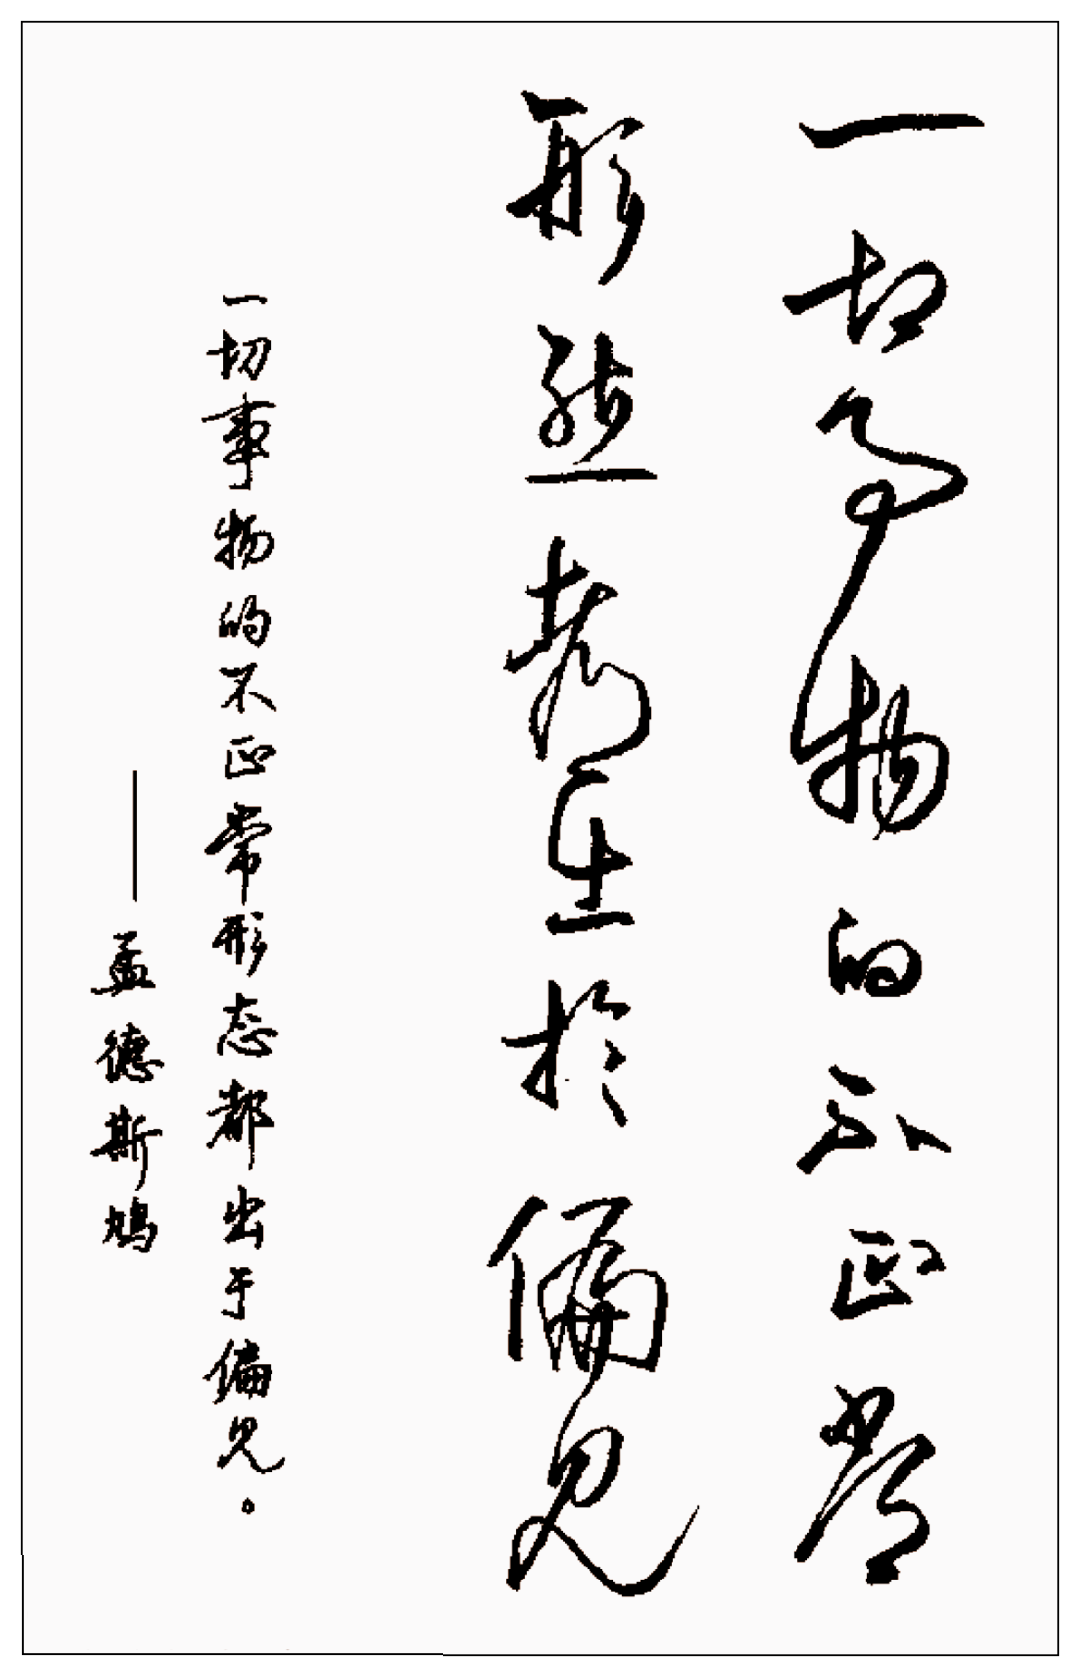 一切事物的不正常
形態都出於偏见
一切事物的不正常形态都出于偏见。
——孟德斯鸠